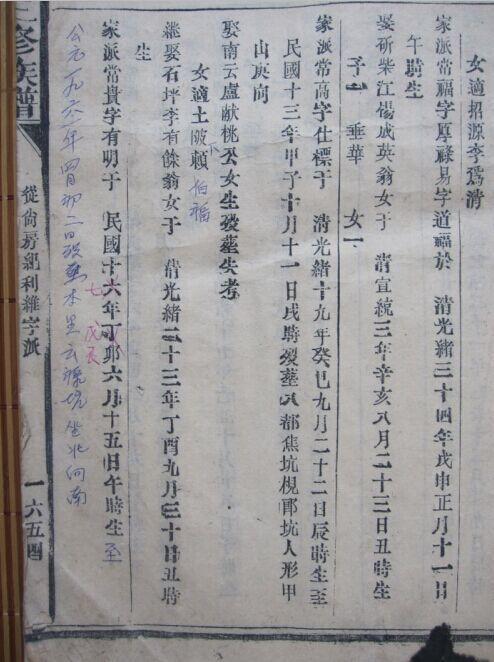 女適招源李爲清
家派常福字厚祿易字道福於 清光緒三十四年戊申正月十一日
午時生
娶斫柴江楊成英翁女于 清宣統三年辛亥八月二十三日丑時生
子一 垂華 女一
家派常高字仕標于 清光緒十九年癸巳九月二十二日辰時生至
民國十三年甲子十月十一日戌時歿葬八都焦坑梘郿坑人形甲
山庚向
娶南云盧献桃公女生歿葬失考
女適土陂頼 伯福
繼娶石坪李有餘翁女于 清光緒二十三年丁酉九月三十日丑時
生
家派常貴字有明于 民國十六年丁卯六月十五日午時生 至
七 戊辰
公元一九六六年四月初二日歿 坐北向南
三修族譜
從尙房紀利維字派
一六五四